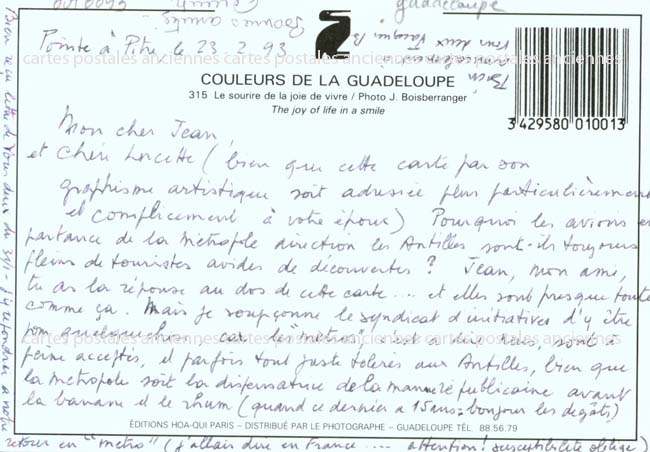 guadeloupe
Bonnes amitiés
Pointe à Pitre le 23 2 93
cartes postales anciennes cartes postales anciennes cartes postales anciennes
COULEURS DE LA GUADELOUPE
315 Le sourire de la joie de vivre / Photo J. Boisberranger
The joy of life in a smile
3 429580 010013
Mon cher Jean,
et Chère Lucette ( bien que cette carte par son
graphisme artistique soit adressée plus particulièrement
et complicement à votre époux) Pourquoi les avions en
partance de la Métropole direction les Antilles sont-ils toujours
pleins de touristes avides de découvertes ? Jean, mon ami,
tu as la réponse au dos de cette carte... et elles sont presque toutes
comme ça. Mais je soupçonne le syndicat d'initiatives d'y être
pour quelque chose car les "métros" c'est à dire nous, sont à
cartes postales anciennes cartes postales anciennes cartes postales anciennes
peine acceptés, et parfois tout juste tolérés aux Antilles, bien que
la Métropole soit la dispensatrice de la manne républicaine avant
la banane et le rhum (quand ce dernier a 15 ans : bonjour les dégâts)
ÉDITIONS HOA-QUI PARIS – DISTRIBUÉ PAR LE PHOTOGRAPHE – GUADELOUPE TÉL. 88.56.79
retour en "métro" (j'allais dire en France .... attention ! susceptibilité oblige)
Bien reçu lettre de vous deux du j'y répondrai à notre